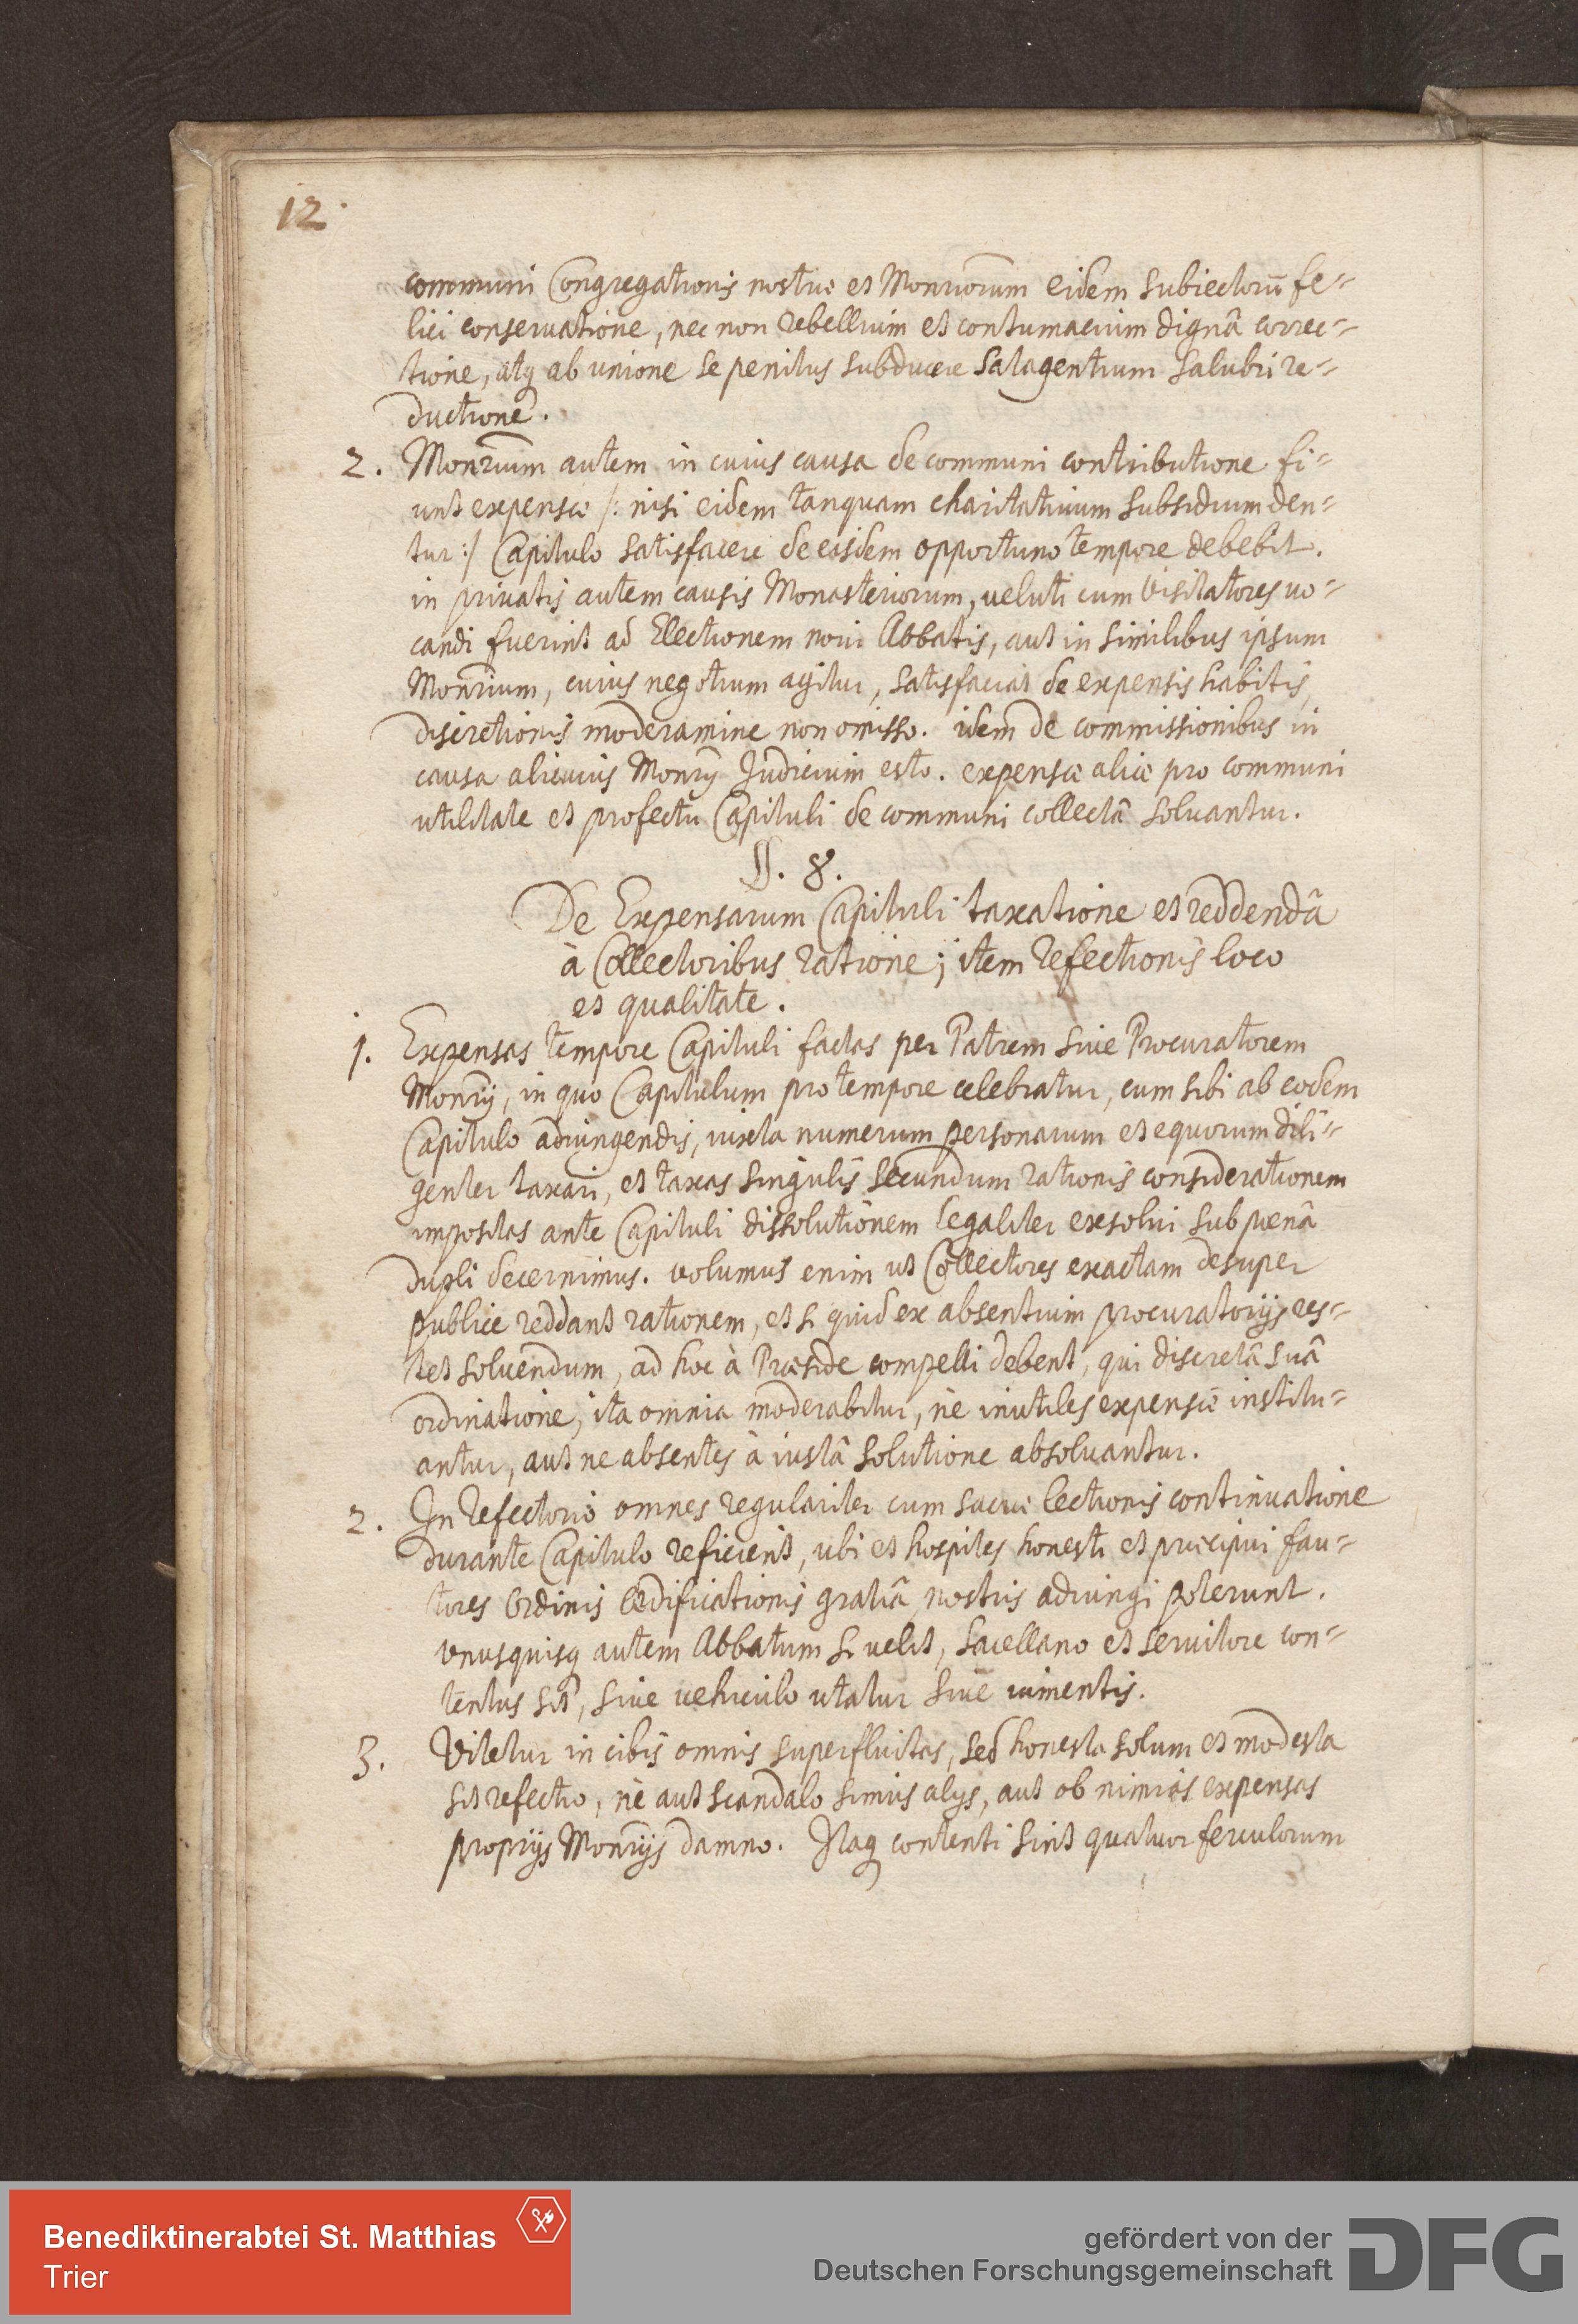 12.
communi Congregationis nostræ et Monriorum eidem subiectorū fe=
lici conseruatione, nec non rebellium et contumacium dignâ correc=
tione, atq ab unione se penitus subducere satagentium salubri re=
ductione.
2. Monrium autem in cuius causa de communi contributione fi=
unt expensæ /: nisi eidem tanquam charitatiuum subsidium den=
tur :/ Capitulo satisfacere de eisdem opportuno tempore debebit.
in priuatis autem causis Monasteriorum, veluti cum Visitatores uo=
candi fuerint ad Electionem noui Abbatis, aut in similibus ipsum
Monrium, cuius negotium agitur, satisfaciat de expensis habitis,
discretionis moderamine non omisso. idem de commissionibus in
causa alicuius Monrij Iudicium esto. expensæ aliæ pro communi
utilitate et profectu Capituli de communi collectâ soluantur.
§. 8.
De Expensarum Capituli taxatione et reddendâ
à Collectoribus ratione; item refectionis loco
et qualitate.
1. Expensas tempore Capituli factas per Patrem siue Procuratorem
Monrij, in quo Capitulum pro tempore celebratur, cum sibi ab eodem
Capitulo adiungendis, iuxta numerum personarum et equorum dili=
genter taxari, et taxas singulis secundum rationis considerationem
impositas ante Capituli dissolutionem legaliter exsolui sub pœnâ
dupli decernimus. volumus enim ut Collectores exactam desuper
publice reddant rationem, et si quid ex absentium procuratorijs res=
tet soluendum, ad hoc à Præside compelli debent, qui discretâ suâ
ordinatione, ita omnia moderabitur, ne inutiles expensæ institu=
antur, aut ne absentes à iustâ solutione absoluantur.
2. In refectorio omnes regulariter cum sacræ lectionis continuatione
durante Capitulo reficient, ubi et hospites honesti et præcipui fau=
tores Ordinis ædificationis gratiâ nostris adiungi poterunt.
vnusquisq autem Abbatum si uelit, sacellano et seruitore con=
tentus sit, siue uehiculo utatur siue iumentis.
3. Vitetur in cibis omnis superfluitas, sed honesta solum et modesta
sit refectio, ne aut scandalo simus alijs, aut ob nimias expensas
proprijs Monrijs damno. Itaq contenti sint quatuor ferculorum
Benediktinerabtei St. Matthias
Trier
gefördert von der
Deutschen Forschungsgemeinschaft
DFG